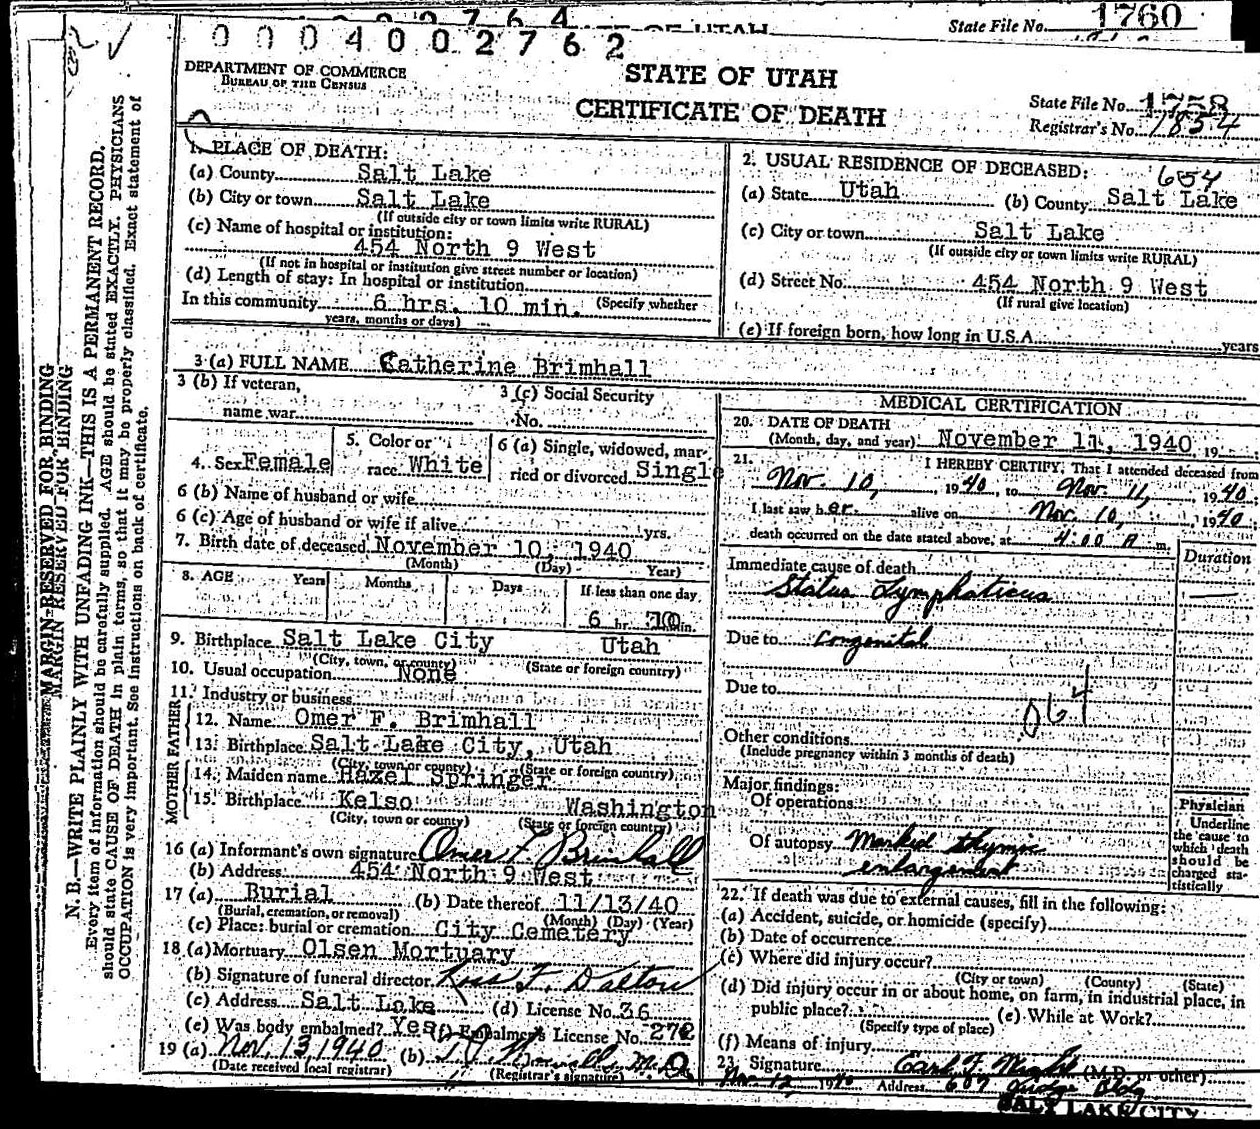 STATE OF UTAH
State File No. 1760
0 0 0 4 0 0 2 7 6 2
DEPARTMENT OF COMMERCE
BUREAU OF THE CENSUS
STATE OF UTAH
CERTIFICATE OF DEATH
State File No. 1758
Registrar's No. 1854
MARGIN RESERVED FOR BINDING
MARGIN RESERVED FOR BINDING
N. B.—WRITE PLAINLY WITH UNFADING INK—THIS IS A PERMANENT RECORD.
Every item of information should be carefully supplied. AGE should be stated EXACTLY. PHYSICIANS
should state CAUSE OF DEATH in plain terms, so that it may be properly classified. Exact statement of
OCCUPATION is very important. See instructions on back of certificate.
1. PLACE OF DEATH:
(a) County Salt Lake
(b) City or town Salt Lake
(If outside city or town limits write RURAL)
(c) Name of hospital or institution:
454 North 9 West
(If not in hospital or institution give street number or location)
(d) Length of stay: In hospital or institution
In this community 6 hrs. 10 min. (Specify whether
years, months or days)
2. USUAL RESIDENCE OF DECEASED: 654
(a) State Utah (b) County Salt Lake
(c) City or town Salt Lake
(If outside city or town limits write RURAL)
(d) Street No. 454 North 9 West
(If rural give location)
(e) If foreign born, how long in U.S.A. years
3 (a) FULL NAME Catherine Brimhall
3 (b) If veteran,
name war
3 (c) Social Security
No.
4. Sex Female
5. Color or
race White
6 (a) Single, widowed, mar-
ried or divorced Single
6 (b) Name of husband or wife
6 (c) Age of husband or wife if alive yrs.
7. Birth date of deceased November 10, 1940
(Month) (Day) Year)
8. AGE Years Months Days If less than one day
6 hr. 10 min.
9. Birthplace Salt Lake City Utah
(City, town, or county) (State or foreign country)
10. Usual occupation None
11. Industry or business
FATHER
12. Name Omer F. Brimhall
13. Birthplace Salt Lake City, Utah
(City, town or county) (State or foreign country)
MOTHER
14. Maiden name Hazel Springer
15. Birthplace Kelso Washington
(City, town or county) (State or foreign country)
16 (a) Informant's own signature Omer F. Brimhall
(b) Address 454 North 9 West
17 (a) Burial (b) Date thereof 11/13/40
(Burial, cremation, or removal) (Month) (Day) (Year)
(c) Place: burial or cremation City Cemetery
18 (a) Mortuary Olsen Mortuary
(b) Signature of funeral director Ross F. Dalton
(c) Address Salt Lake (d) License No. 36
(e) Was body embalmed? Yes (f) Embalmer's License No. 272
19 (a) Nov. 13, 1940 (b) M.D.
(Date received local registrar) (Registrar's signature)
MEDICAL CERTIFICATION
20. DATE OF DEATH
(Month, day, and year) November 11, 1940, 19
21. I HEREBY CERTIFY, That I attended deceased from
Nov. 10, 1940, to Nov. 11, 1940
I last saw her alive on Nov. 10, 1940
death occurred on the date stated above, at 4:00 A m.
Immediate cause of death
Duration
Status Lymphaticus
Due to congenital
Due to
064
Other conditions
(Include pregnancy within 3 months of death)
Major findings:
Of operations
Of autopsy Marked thymic
enlargement
Physician
Underline
the cause to
which death
should be
charged sta-
tistically
22. If death was due to external causes, fill in the following:
(a) Accident, suicide, or homicide (specify)
(b) Date of occurrence
(c) Where did injury occur?
(City or town) (County) (State)
(d) Did injury occur in or about home, on farm, in industrial place, in
public place? (e) While at Work?
(Specify type of place)
(f) Means of injury
23. Signature Earl F. Wight (M.D. or other)
Nov. 12, 1940 Address 607 Judge Bldg
SALT LAKE CITY